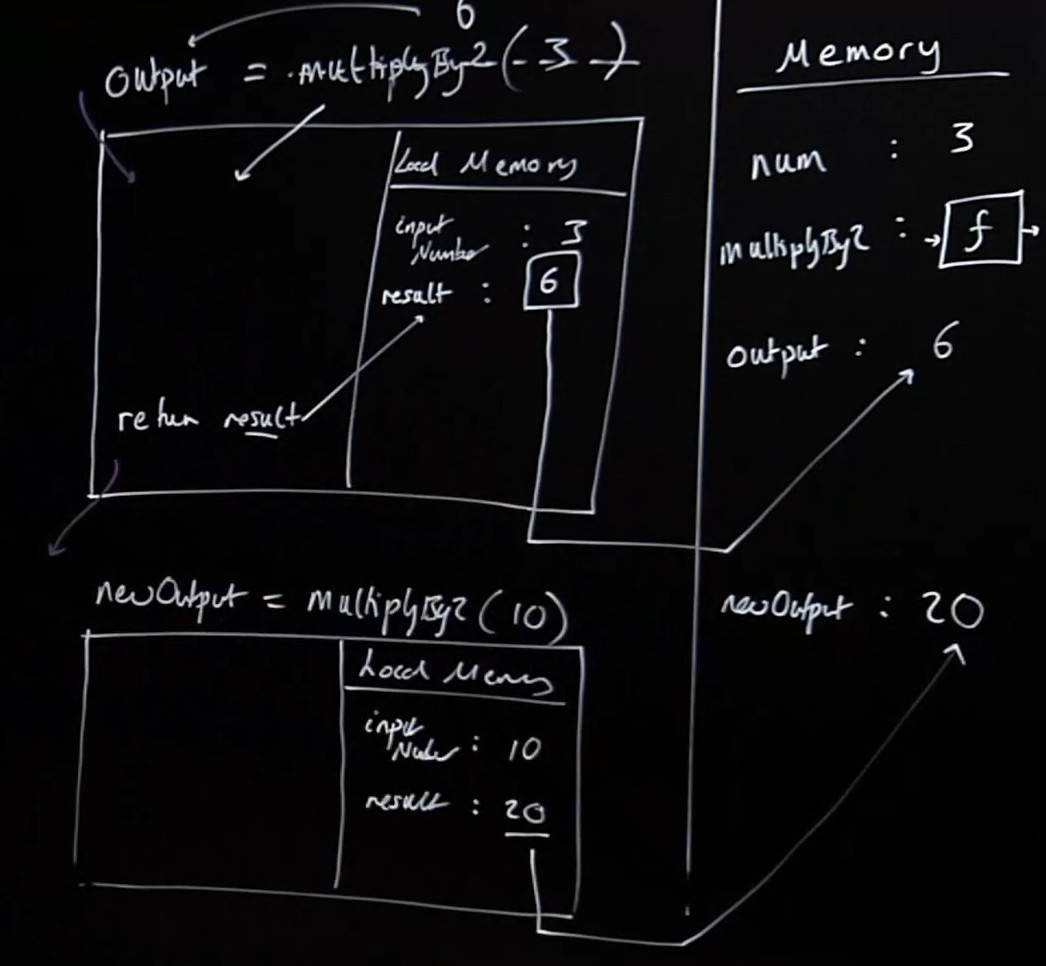 6
Output = multiplyBy2(3)
Local Memory
input
Number : 3
result : 6
return result
newOutput = multiplyBy2(10)
Local Memory
input
Number : 10
result : 20
Memory
num : 3
multiplyBy2 : f
output : 6
newOutput : 20